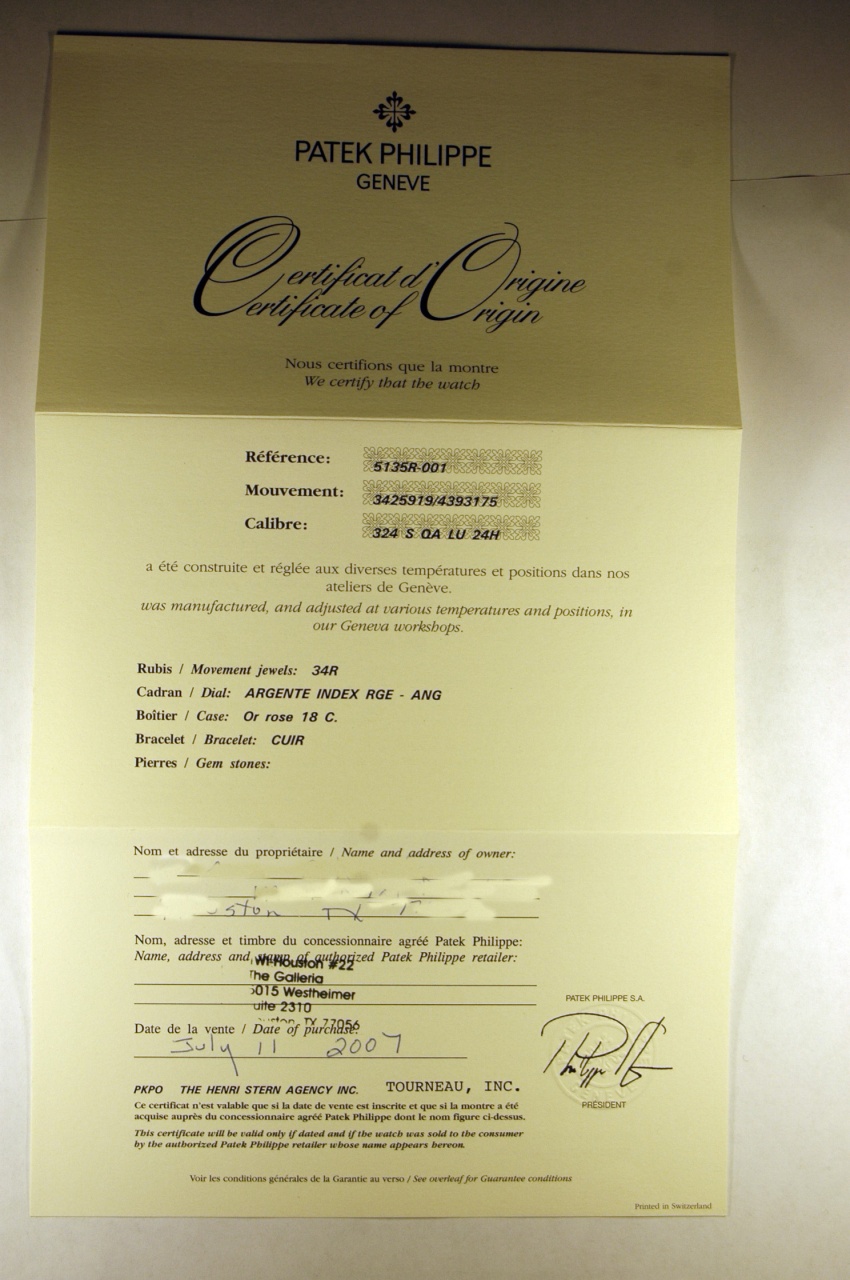 PATEK PHILIPPE
GENEVE
Certificat d'Origine
Certificate of Origin
Nous certifions que la montre
We certify that the watch
Référence: 5135R-001
Mouvement: 3425919/4393175
Calibre: 324 S QA LU 24H
a été construite et réglée aux diverses températures et positions dans nos
ateliers de Genève.
was manufactured, and adjusted at various temperatures and positions, in
our Geneva workshops.
Rubis / Movement jewels: 34R
Cadran / Dial: ARGENTE INDEX RGE - ANG
Boîtier / Case: Or rose 18 C.
Bracelet / Bracelet: CUIR
Pierres / Gem stones:
Nom et adresse du propriétaire / Name and address of owner:
TX
Nom, adresse et timbre du concessionnaire agréé Patek Philippe:
Name, address and stamp of authorized Patek Philippe retailer:
Houston #22
The Galleria
5015 Westheimer
2310
TX 77056
Date de la vente / Date of purchase:
July 11 2007
PKPO THE HENRI STERN AGENCY INC. TOURNEAU, INC.
Ce certificat n'est valable que si la date de vente est inscrite et que si la montre a été
acquise auprès du concessionnaire agréé Patek Philippe dont le nom figure ci-dessus.
This certificate will be valid only if dated and if the watch was sold to the consumer
by the authorized Patek Philippe retailer whose name appears hereon.
PATEK PHILIPPE S.A.
PRÉSIDENT
Voir les conditions générales de la Garantie au verso / See overleaf for Guarantee conditions
Printed in Switzerland